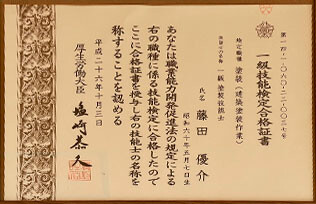 第一四-一-〇六〇-二二-〇〇三七号
一級技能検定合格証書
検定職種 塗装(建築塗装作業)
技能士の名称 一級塗装技能士
氏名 藤田優介
昭和六十年五月七日生
あなたは職業能力開発促進法の規定による
右の職種に係る技能検定に合格したので
ここに合格証書を授与し右の技能士の名称を
称することを認める
平成二十六年十月三日
厚生労働大臣 塩崎恭久